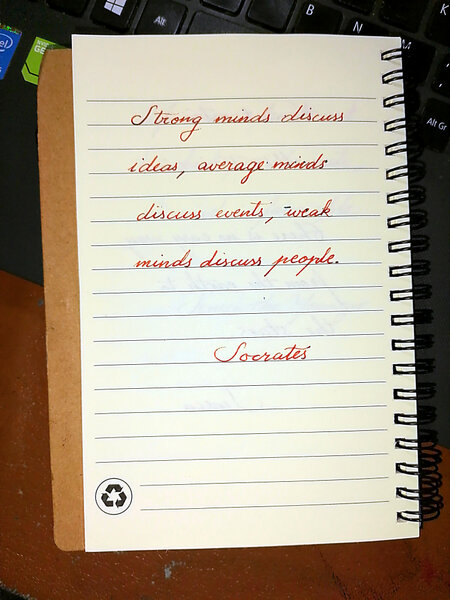 Alt
B
N
M
K
intel
GE
Alt Gr
Strong minds discuss
ideas, average minds
discuss events, weak
minds discuss people.
Socrates